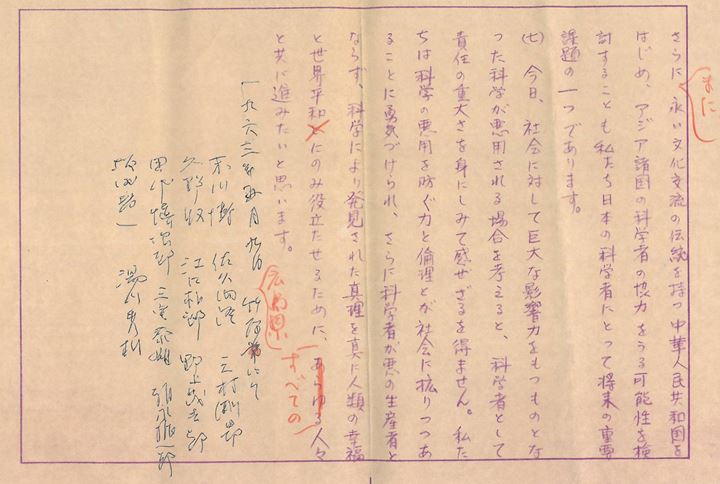 さらに、永い文化交流の伝統を持つ中華人民共和国を
はじめ、アジア諸国の科学者の協力をうる可能性を検
討することも私たち日本の科学者にとって将来の重要
課題の一つであります。
(七) 今日、社会に対して巨大な影響力をもつものとな
った科学が悪用される場合を考えると、科学者として
責任の重大さを身にしみて感ぜざるを得ません。私た
ちは科学の悪用を防ぐ力と倫理とが社会に拡りつつあ
ることに勇気づけられ、さらに科学者が悪の生産者と
ならず、科学により発見された真理を真に人類の幸福
と世界平和とにのみ役立たせるために、あらゆる人々
すべての
と共に進みたいと思います。
広島県
一九六三年五月九日 竹原市にて
末川博 佐久間澄 三村剛昂
久野收 江口朴郎 野上茂吉郎
田中慎次郎 三宅泰雄 朝永振一郎
坂田昌一 湯川秀樹